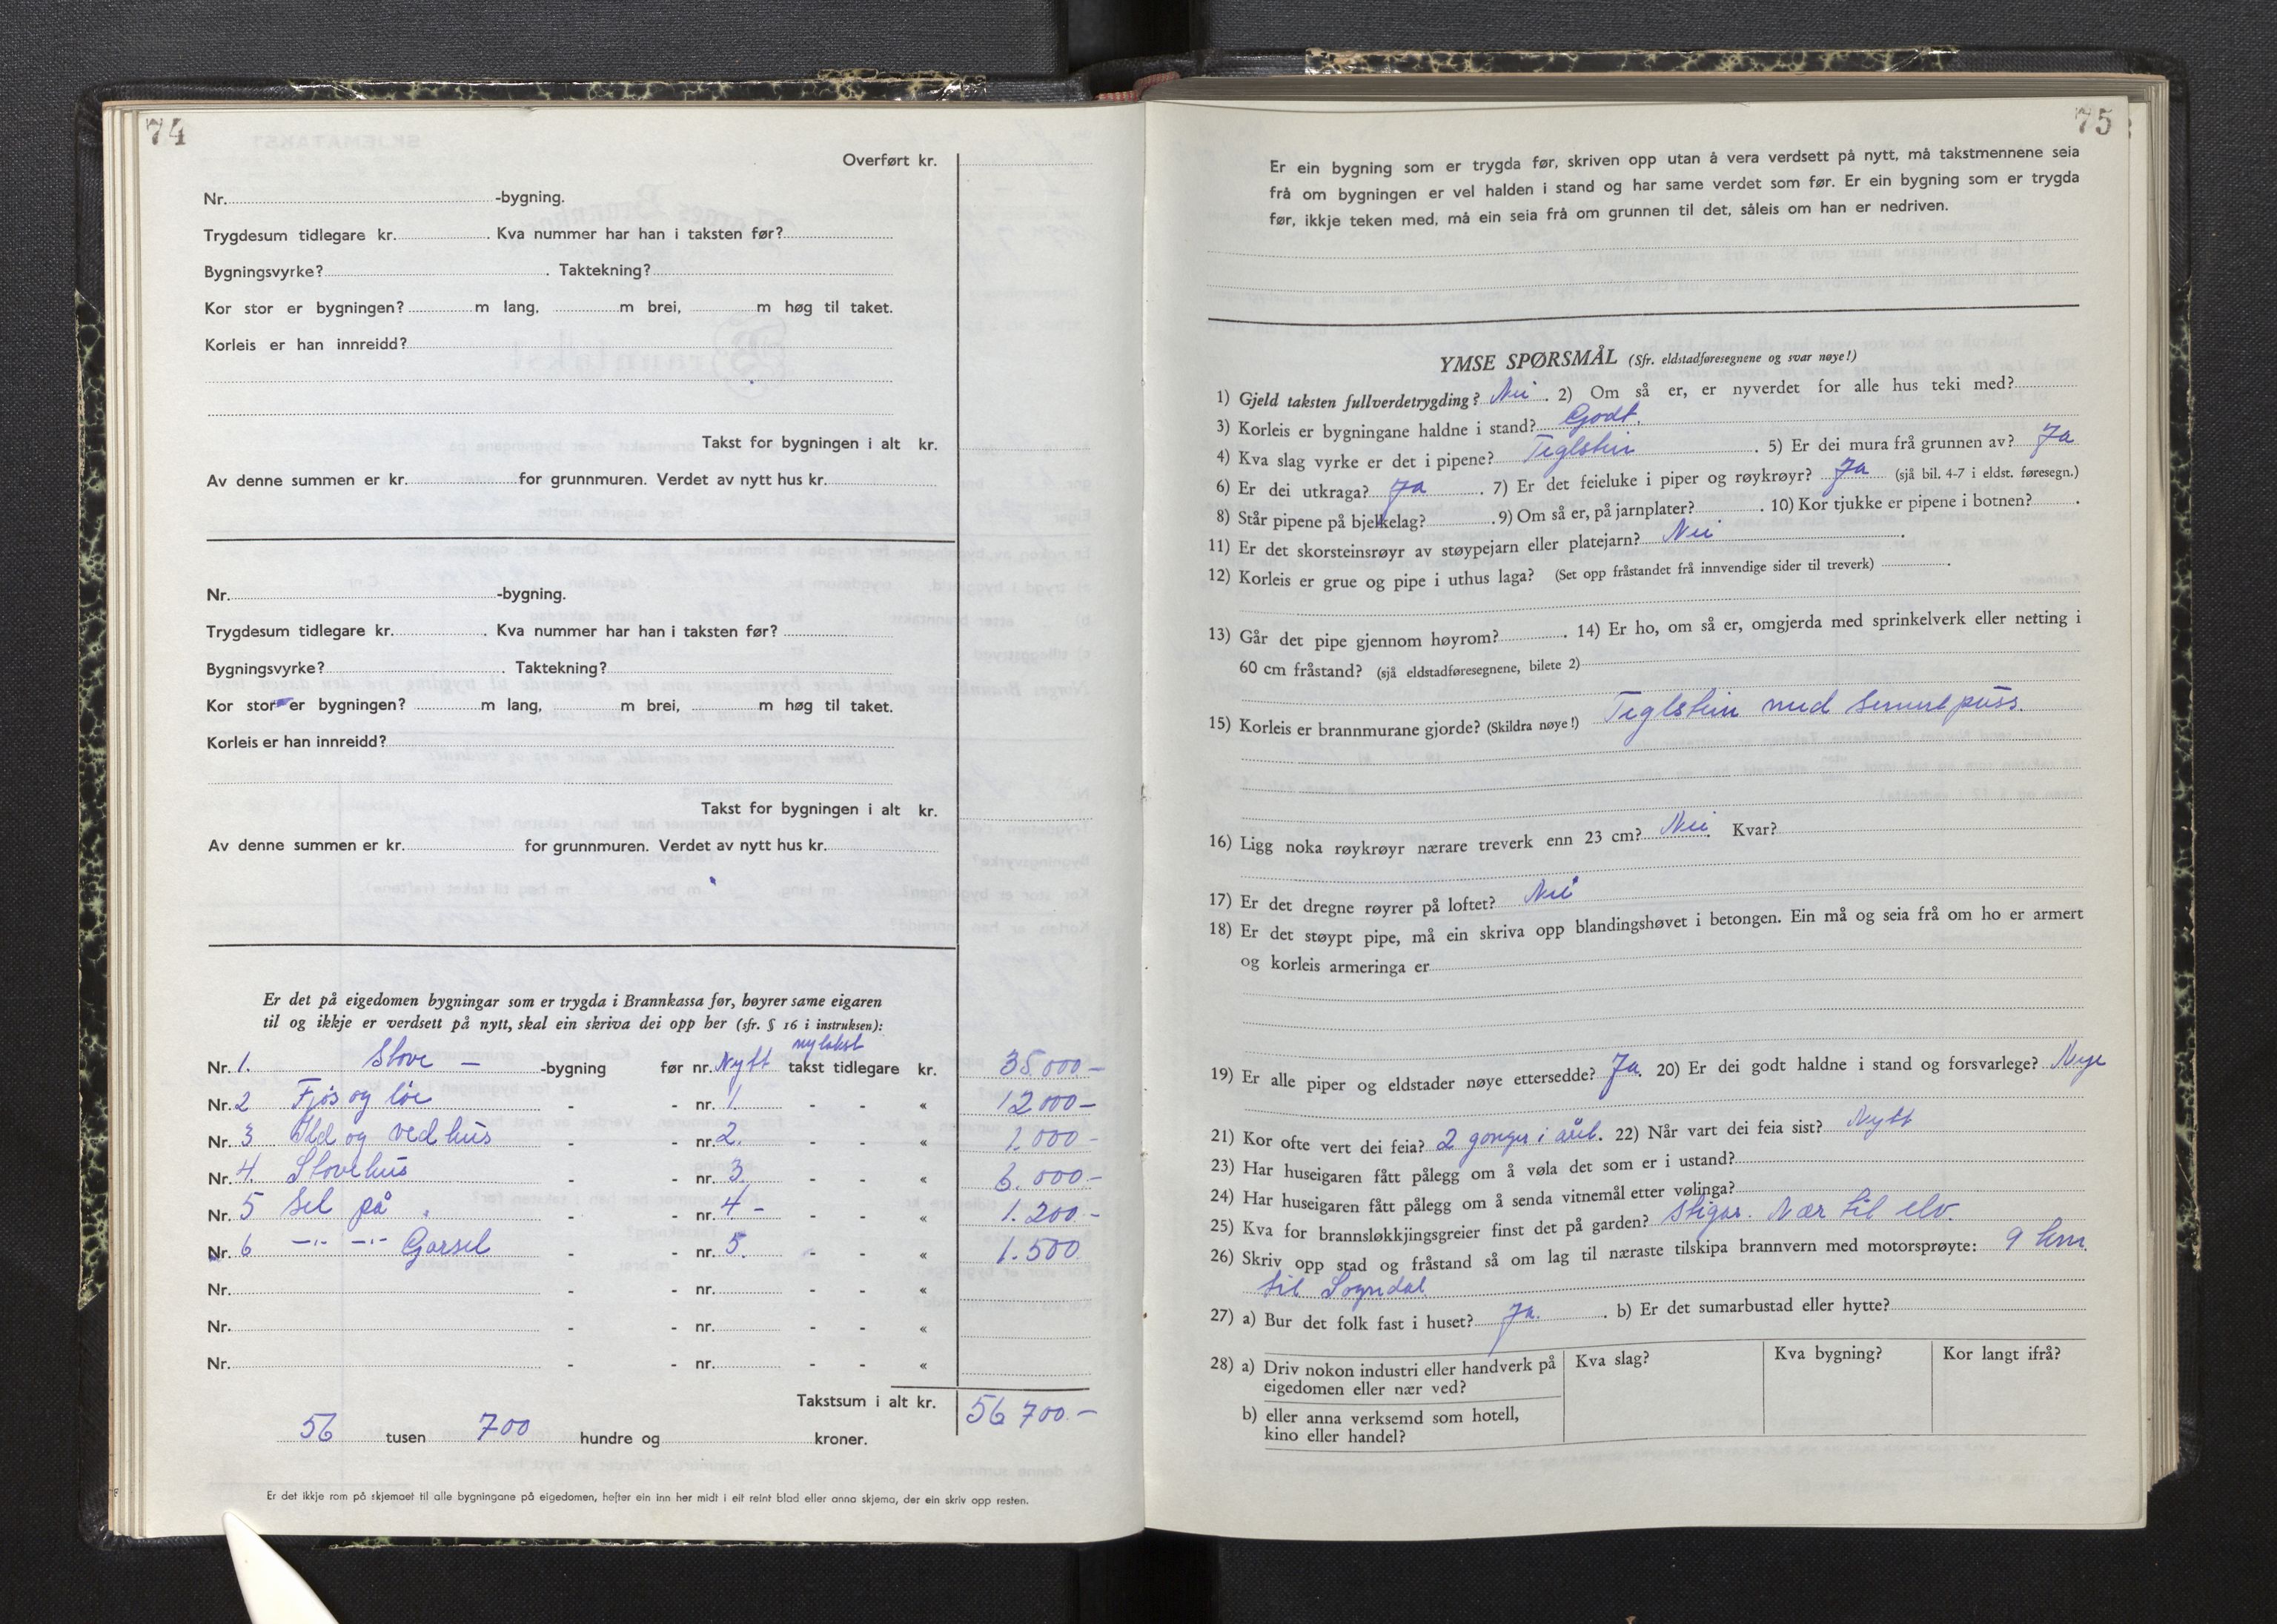 74
Overført kr.
Nr. -bygning.
Trygdesum tidlegare kr. . Kva nummer har han i taksten før?
Bygningsvyrke? . Taktekning?
Kor stor er bygningen? m lang, m brei, m høg til taket.
Korleis er han innreidd?
Takst for bygningen i alt kr.
Av denne summen er kr. for grunnmuren. Verdet av nytt hus kr.
Nr. -bygning.
Trygdesum tidlegare kr. . Kva nummer har han i taksten før?
Bygningsvyrke? . Taktekning?
Kor stor er bygningen? m lang, m brei, m høg til taket.
Korleis er han innreidd?
Takst for bygningen i alt kr.
Av denne summen er kr. for grunnmuren. Verdet av nytt hus kr.
Er det på eigedomen bygningar som er trygda i Brannkassa før, høyrer same eigaren
til og ikkje er verdsett på nytt, skal ein skriva dei opp her (sfr. § 16 i instruksen):
nytakst
Nr. 1. Stove — -bygning før nr. Nytt takst tidlegare kr. 35.000 —
Nr. 2 Fjøs og løe - - nr. 1. - - « 12000 —
Nr. 3 Ild og vedhus - - nr. 2. - - « 1.000 -
Nr. 4. Stovehus - - nr. 3. - - « 6.000 -
Nr. 5 Sel på " - - nr. 4 - - - « 1.200 -
Nr. 6 —"— —"— Garsel - - nr. 5. - - « 1.500
Nr. - - nr. - - «
Nr. - - nr. - - «
Nr. - - nr. - - «
Takstsum i alt kr. 56 700.—
56 tusen 700 hundre og kroner.
Er det ikkje rom på skjemaet til alle bygningane på eigedomen, hefter ein inn her midt i eit reint blad eller anna skjema, der ein skriv opp resten.
75
Er ein bygning som er trygda før, skriven opp utan å vera verdsett på nytt, må takstmennene seia
frå om bygningen er vel halden i stand og har same verdet som før. Er ein bygning som er trygda
før, ikkje teken med, må ein seia frå om grunnen til det, såleis om han er nedriven.
YMSE SPØRSMÅL (Sfr. eldstadføresegnene og svar nøye!)
1) Gjeld taksten fullverdetrygding? Nei . 2) Om så er, er nyverdet for alle hus teki med?
3) Korleis er bygningane haldne i stand? Godt.
4) Kva slag vyrke er det i pipene? Teglstein . 5) Er dei mura frå grunnen av? Ja
6) Er dei utkraga? Ja . 7) Er det feieluke i piper og røykrøyr? Ja (sjå bil. 4-7 i eldst. føresegn.)
8) Står pipene på bjelkelag? . 9) Om så er, på jarnplater? . 10) Kor tjukke er pipene i botnen? .
11) Er det skorsteinsrøyr av støypejarn eller platejarn? Nei .
12) Korleis er grue og pipe i uthus laga? (Set opp fråstandet frå innvendige sider til treverk) .
13) Går det pipe gjennom høyrom? . 14) Er ho, om så er, omgjerda med sprinkelverk eller netting i
60 cm fråstand? (sjå eldstadføresegnene, bilete 2)
15) Korleis er brannmurane gjorde? (Skildra nøye!) Teglstein med sement puss.
16) Ligg noka røykrøyr nærare treverk enn 23 cm? Nei. Kvar?
17) Er det dregne røyrer på loftet? Nei
18) Er det støypt pipe, må ein skriva opp blandingshøvet i betongen. Ein må og seia frå om ho er armert
og korleis armeringa er
19) Er alle piper og eldstader nøye ettersedde? Ja. 20) Er dei godt haldne i stand og forsvarlege? Nye
21) Kor ofte vert dei feia? 2 gonger i året. 22) Når vart dei feia sist? Nytt
23) Har huseigaren fått pålegg om å vøla det som er i ustand?
24) Har huseigaren fått pålegg om å senda vitnemål etter vølinga?
25) Kva for brannsløkkjingsgreier finst det på garden? Stigar. Nær til elv.
26) Skriv opp stad og fråstand så om lag til næraste tilskipa brannvern med motorsprøyte: 9 km.
til Sogndal
27) a) Bur det folk fast i huset? Ja. . b) Er det sumarbustad eller hytte?
28) a) Driv nokon industri eller handverk på Kva slag? Kva bygning? Kor langt ifrå?
eigedomen eller nær ved?
b) eller anna verksemd som hotell,
kino eller handel?